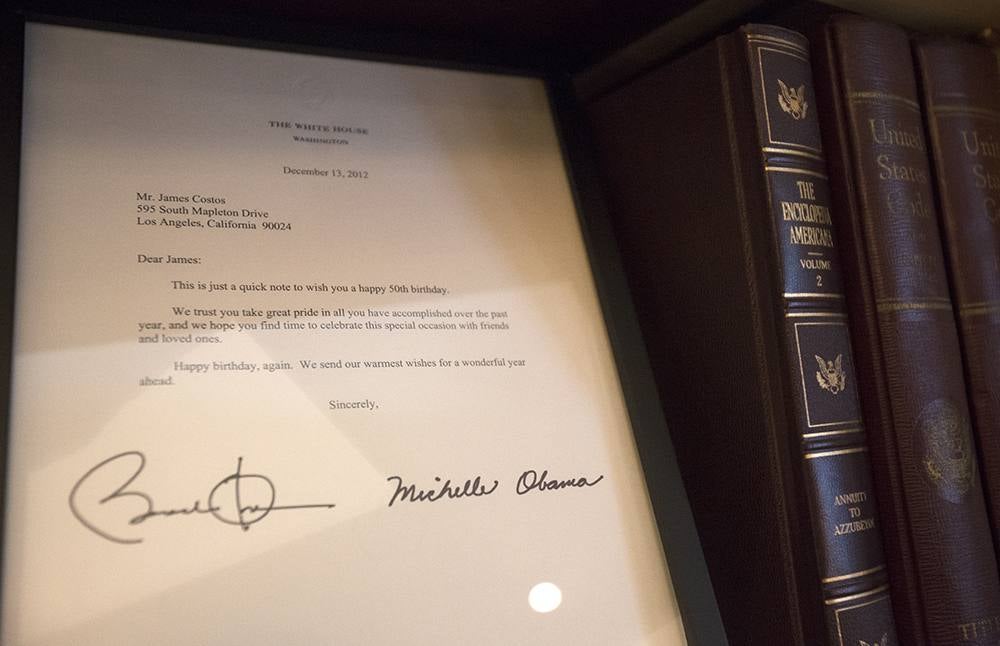 THE WHITE HOUSE
WASHINGTON
December 13, 2012
Mr. James Costos
595 South Mapleton Drive
Los Angeles, California 90024
Dear James:
This is just a quick note to wish you a happy 50th birthday.
We trust you take great pride in all you have accomplished over the past
year, and we hope you find time to celebrate this special occasion with friends
and loved ones.
Happy birthday, again. We send our warmest wishes for a wonderful year
ahead.
Sincerely,
Michelle Obama
THE
ENCYCLOPEDIA
AMERICANA
VOLUME
2
ANNUITY
TO
United
States
Code